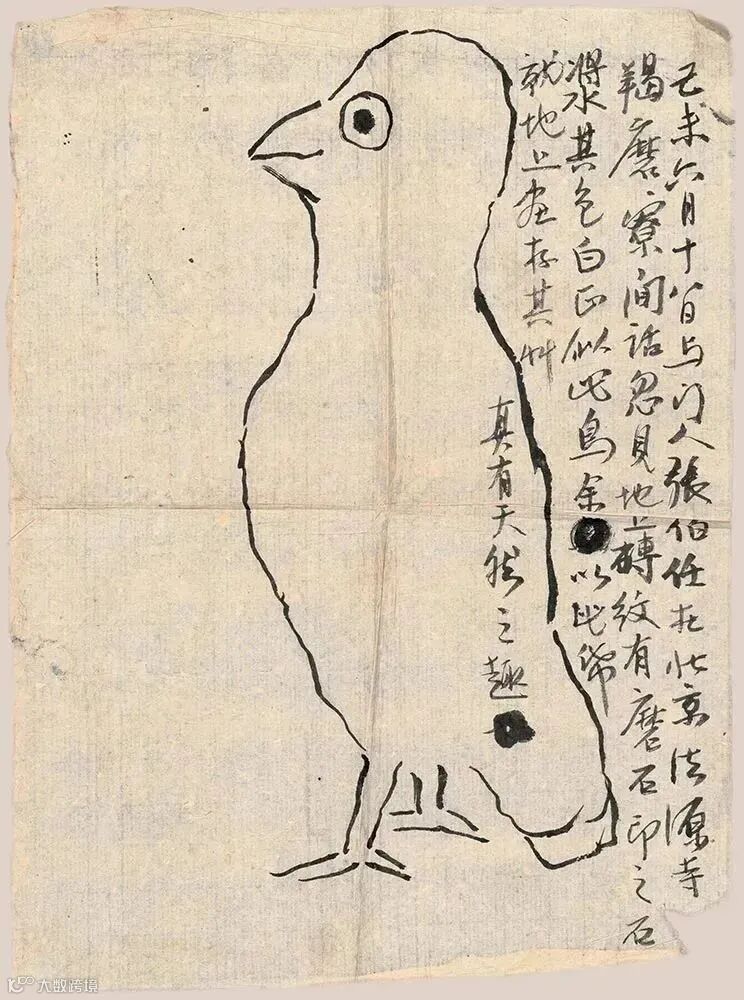 己未六月十八日与门人張伯任在北京法源寺
羯磨寮间話忽見地上磚紋有磨石印之石
浆水其色白正似此鳥余以此紙
就地上画存其艸
真有天然之趣
大数跨境